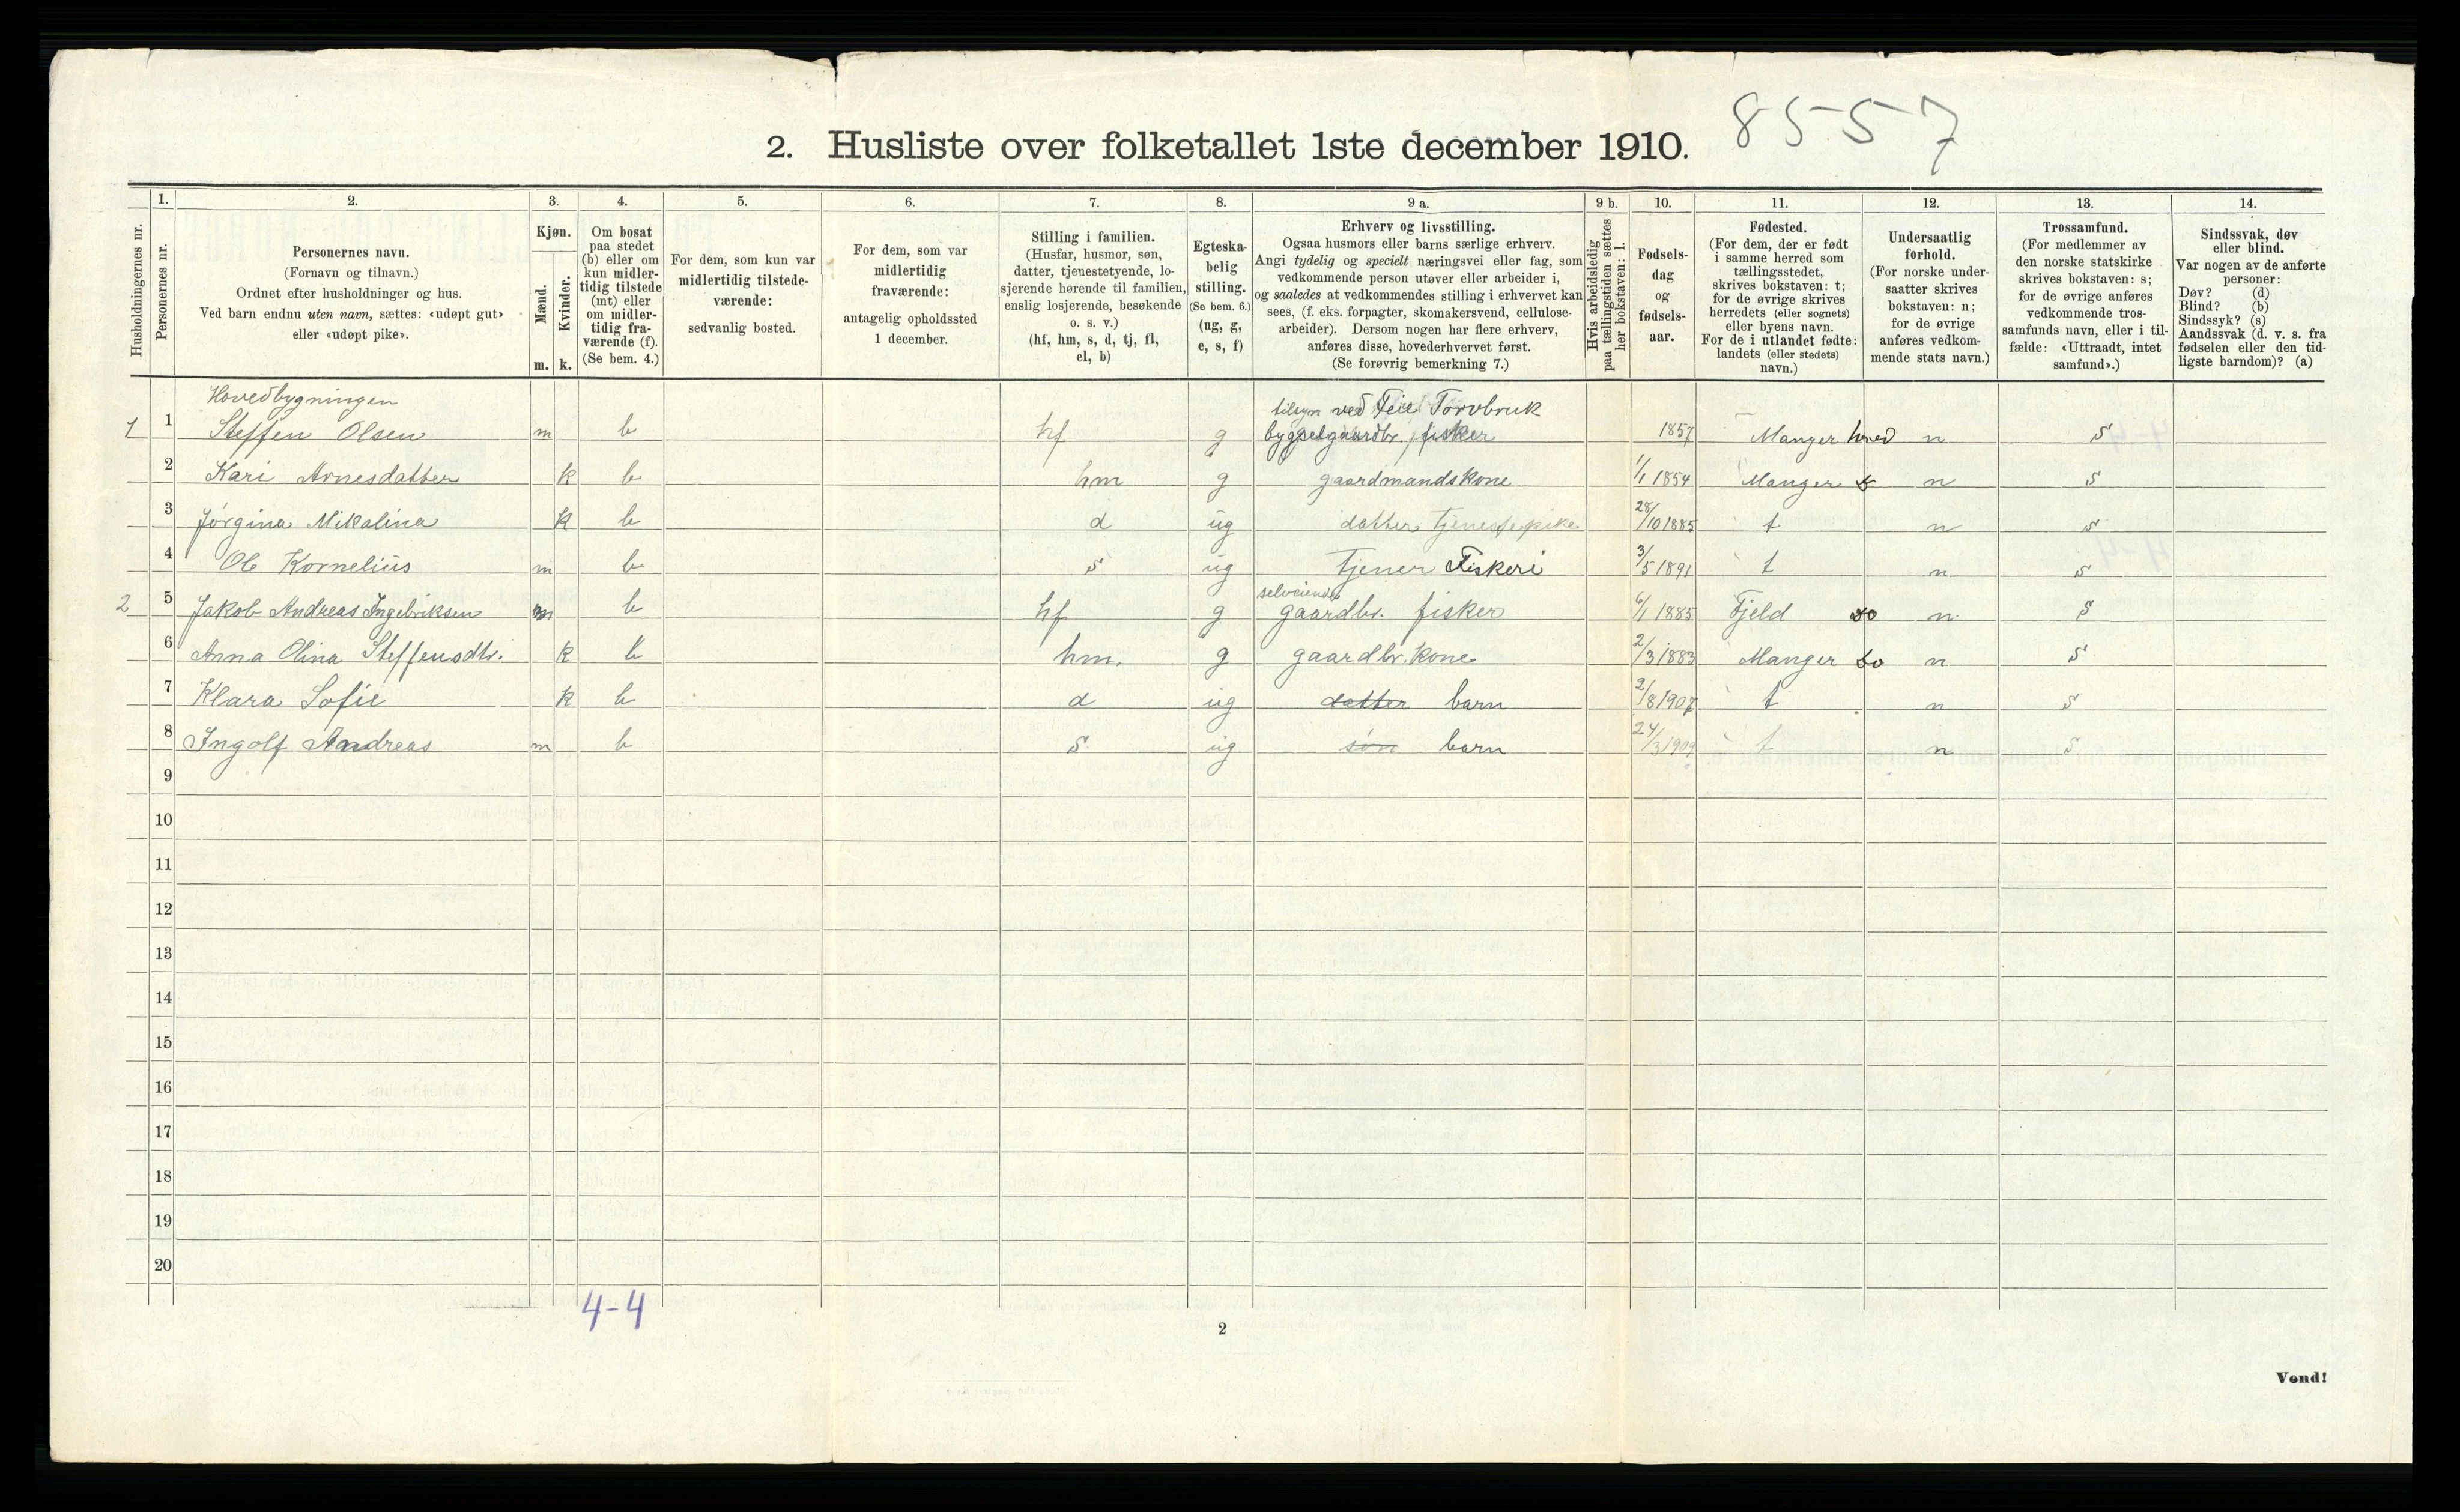 8557
2. Husliste over folketallet 1ste december 1910.
Husholdningernes nr.
1.
Personernes nr.
2.
Personernes navn.
(Fornavn og tilnavn.)
Ordnet efter husholdninger og hus.
Ved barn endnu uten navn, sættes: «udøpt gut»
eller «udøpt pike».
3.
Kjøn.
Mænd.
m.
Kvinder.
k.
4.
Om bosat
paa stedet
(b) eller om
kun midler-
tidig tilstede
(mt) eller
om midler-
tidig fra-
værende (f).
(Se bem. 4.)
5.
For dem, som kun var
midlertidig tilstede-
værende:
sedvanlig bosted.
6.
For dem, som var
midlertidig
fraværende:
antagelig opholdssted
1 december.
7.
Stilling i familien.
(Husfar, husmor, søn,
datter, tjenestetyende, lo-
sjerende hørende til familien,
enslig losjerende, besøkende
o. s. v.)
(hf, hm, s, d, tj, fl,
el, b)
8.
Egteska-
belig
stilling.
(Se bem. 6.)
(ug, g,
e, s, f)
9 a.
Erhverv og livsstilling.
Ogsaa husmors eller barns særlige erhverv.
Angi tydelig og specielt næringsvei eller fag, som
vedkommende person utøver eller arbeider i,
og saaledes at vedkommendes stilling i erhvervet kan
sees, (f. eks. forpagter, skomakersvend, cellulose-
arbeider). Dersom nogen har flere erhverv,
anføres disse, hovederhvervet først.
(Se forøvrig bemerkning 7.)
9 b.
Hvis arbeidsledig
paa tællingstiden sættes
her bokstaven: l.
10.
Fødsels-
dag
og
fødsels-
aar.
11.
Fødested.
(For dem, der er født
i samme herred som
tællingsstedet,
skrives bokstaven: t;
for de øvrige skrives
herredets (eller sognets)
eller byens navn.
For de i utlandet fødte:
landets (eller stedets)
navn.)
12.
Undersaatlig
forhold.
(For norske under-
saatter skrives
bokstaven: n;
for de øvrige
anføres vedkom-
mende stats navn.)
13.
Trossamfund.
(For medlemmer av
den norske statskirke
skrives bokstaven: s;
for de øvrige anføres
vedkommende tros-
samfunds navn, eller i til-
fælde: «Uttraadt, intet
samfund».)
14.
Sindssvak, døv
eller blind.
Var nogen av de anførte
personer:
Døv? (d)
Blind? (b)
Sindssyk? (s)
Aandssvak (d. v. s. fra
fødselen eller den tid-
ligste barndom)? (a)
Hovedbygningen
tilsyn ved Feie Torvbruk
1 1 Steffen Olsen m b hf g bygselgaardbr. fisker 1857 Manger n s
2 Kari Arnesdatter k b hm g gaardmandskone 1/1 1854 Manger n s
3 Jørgina Mikalina k b d ug datter tjenestepike 28/10 1885 t n s
4 Ole Kornelius m b s ug Tjener Fiskeri 3/5 1891 t n s
selveiende
2 5 Jakob Andreas Ingebriksen m b hf g gaardbr. fisker 6/1 1885 Fjeld do n s
6 Anna Olina Steffensdtr. k b hm. g gaardbr. kone 2/3 1883 Manger do n s
7 Klara Sofie k b d ug datter barn 2/8 1907 t n s
8 Ingolf Andreas m b s ug søn barn 24/3 1909 t n s
9
10
11
12
13
14
15
16
17
18
19
20
4-4
2
Vend!